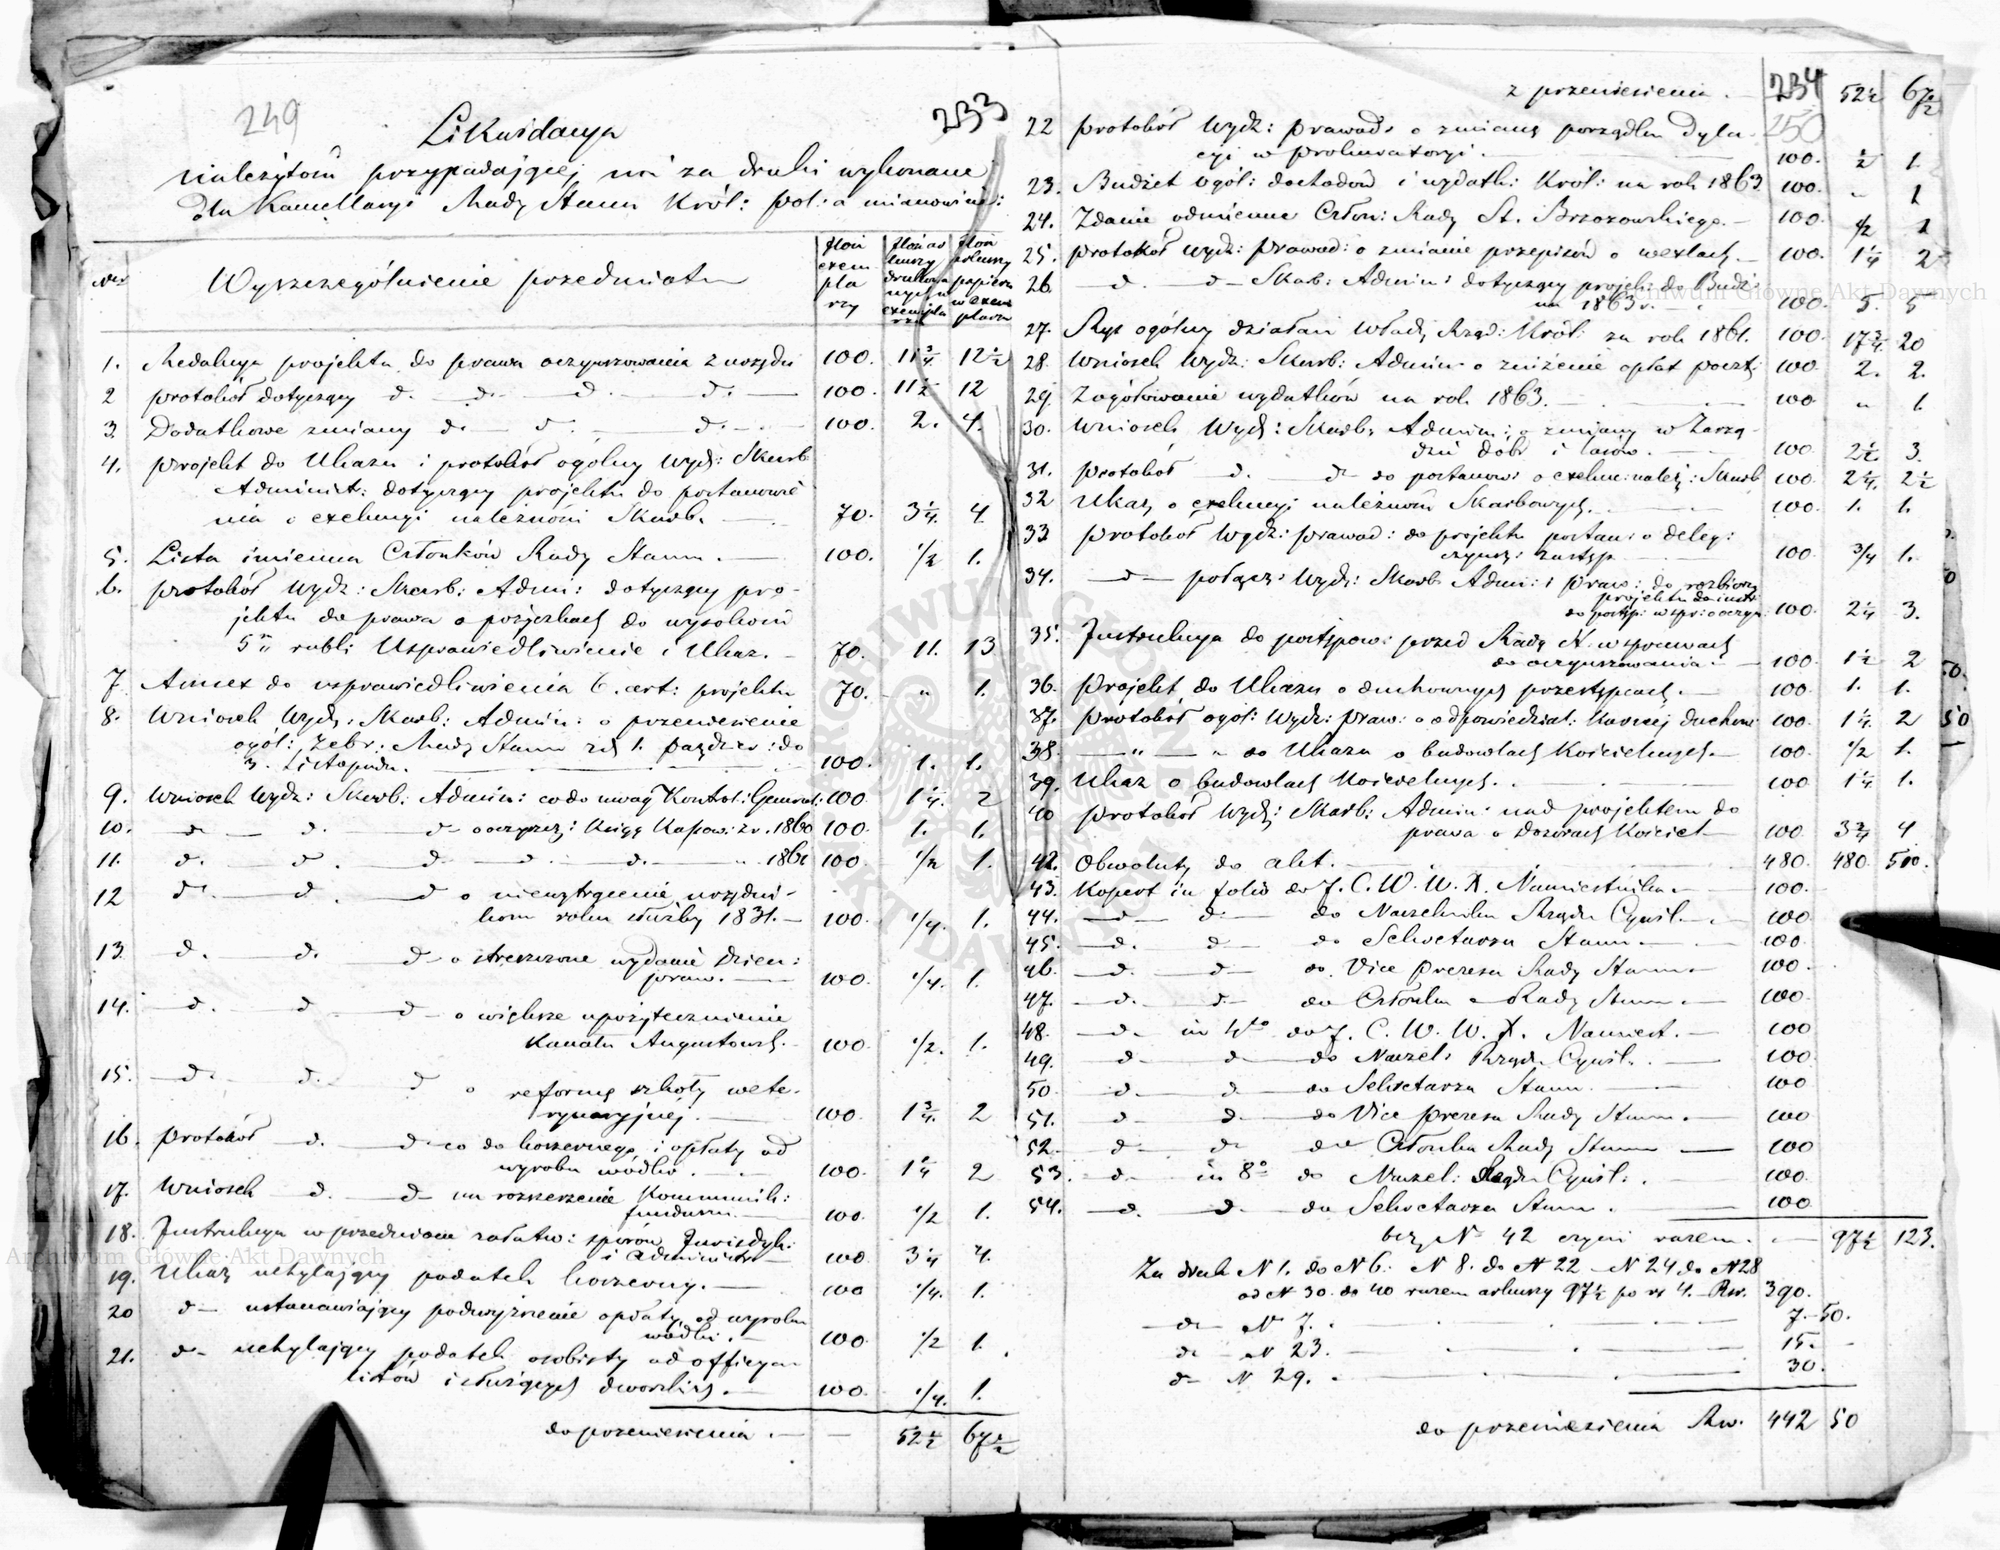 249
233
Likwidacya
należytości przypadającej mi za druki wykonane
dla Kancellaryi Rady Stanu Król: Pol: a mianowicie:
Wyszczególnienie przedmiotu
Ilość exem pla rzy
Ilość ar kuszy drukowa nych w exempla rzu
Ilość arkuszy papieru w exem plarzu
1. Redakcya projektu do prawa oczynszowania z urzędu 100. 11 3/4 12 1/2
2 Protokół dotyczący d. — d. — d. — d. — 100. 11 1/2 12
3. Dodatkowe zmiany d. — d. — d. — 100. 2. 4.
4. Projekt do Ukazu i protokół ogólny Wydz: Skarb
Administ: dotyczący projektu do postanowie
nia o exekucyi należności Skarb. — 70. 3 1/4 4.
5. Lista imienna Członków Rady Stanu. — 100. 1/2 1.
6. Protokół Wydz: Skarb: Adm: dotyczący pro-
jektu do prawa o pożyczkach do wysokości
5 rubli Usprawiedliwienie i Ukaz. — 70. 11. 13
7 Annex do usprawiedliwienia 6. art: projektu 70. " 1.
8. Wniosek Wydz: Skarb: Admin: o przeniesienie
ogól: Zebr: Rady Stanu zd 1. Paździer: do
3. Listopada. — 100. 1. 1.
9. Wniosek Wydz: Skarb: Admin: co do uwag Kontrol: General: 100 1 1/4 2
10. — d — d. — d — o oczyszcz: Ksiąg Kasow: z r. 1860 100. 1. 1.
11. d. — d. — d. — d. — d. — " 1861 100 1/2 1.
12 d. — d. — d o niewytrącenie urzędni-
kom roku służby 1831. — 100. 1/4. 1.
13. d. — d. — d — o streszczone wydanie Dzien:
praw. — 100. 1/4. 1.
14. — d. — d — d — o większe upożytecznienie
Kanału Augustowsk. — 100. 1/2. 1.
15. — d. — d. — d o reformę szkoły wete-
rynaryjnej. — 100. 1 3/4. 2
16. Protokół — d. — d — co do koszernego i opłaty od
wyrobu wódki. — 100. 1 1/4 2
17. Wniosek — d. — d — na rozszerzenie Kommunik:
funduszu. — 100. 1/2 1.
18. Instrukcya w przedmiocie załatw: sporów Jurisdyk:
i Administr — 100 3 1/4 4.
19. Ukaz uchylający podatek koszerny. — 100 1/4. 1.
20 d — ustanawiający podwyższenie opłaty od wyrobu
wódki. — 100 1/2 1.
21. d — uchylający podatek osobisty od officya-
listów i służących dworskich. — 100. 1/4. 1.
do przeniesienia. — — 52 1/2 67 1/2
z przeniesienia. — 52 1/2 67 1/2
234
250
22 Protokół Wydz: Prawod: o zmianę porządku Dyla
cyi w Prokuratoryi. — 100. 1/2 1.
23. Budżet ogól: dochodów i wydatk: Król: na rok 1863 100. — 1
24. Zdanie odmienne Człon: Rady St. Brzozowskiego. — 100. 1/2 1
25. Protokół Wydz: Prawod: o zmianie przepisów o wexlach. — 100. 1 1/4 2
26. — d. — d — Skarb: Admin: dotyczący projek: do Budż:
na 1863 r. — 100. 5. 5
27. Rys ogólny działań Władz Rząd: Król: za rok 1861. 100. 17 3/4 20
28. Wniosek Wydz: Skarb: Admin: o zniżenie opłat poczt: 100. 2. 2.
29. Zogółowanie wydatków na rok 1863. — 100 " 1.
30. Wniosek Wydz: Skarb: Admin: o zmiany w Zarzą-
dzie dóbr i lasów. — 100 2 1/2 3.
31. Protokół — d. — d — do postanow: o exekuc: należ: Skarb 100. 2 1/4. 2 1/2
32 Ukaz o exekucyi należności Skarbowych. — 100. 1. 1.
33. Protokół Wydz: Prawod: do projektu postan: o deleg:
czynsz: zastęp — 100. 3/4 1.
34. — d — połącz: Wydz: Skarb Admi: i Praw: do rozbioru
projektu do instr
do postęp: w spr: o oczyn: 100. 2 1/4 3.
35. Instrukcya do postępow: przed Radą St. w sprawach
do oczynszowania. — 100. 1 1/2 2
36. Projekt do Ukazu o duchownych przestępcach. — 100. 1. 1.
37. Protokół ogól: Wydz: Praw: o odpowiedzial: Karnej duchow: 100. 1 1/4. 2
38. — " — " do Ukazu o budowlach Kościelnych. — 100. 1/2 1.
39. Ukaz o budowlach Kościelnych. . — 100 1 1/4 1.
40 Protokół Wydz: Skarb: Admin: nad projektem do
prawa o Dozorach Kościel — 100. 3 3/4 4
42. Obwoluty do akt. — 480. 480 500.
43. Kopert in folio do J. C. W. W. X. Namiestnika — 100.
44. — d — d. — do Naczelnika Rządu Cywil. — 100
45. — d. d — do Sekretarza Stanu. — 100
46. — d. d — do. Vice Prezesa Rady Stanu — 100.
47. — d. d. — do Członka — Rady Stanu. — 100.
48. — d. in 4to do J. C. W. W. X. Namiest. — 100
49. d — d — do Naczel: Rządu Cywil. . — 100
50. — d — d — do Sekretarza Stanu. — 100
51. d — d. — do Vice Prezesa Rady Stanu. — 100
52. — d — d — do Członka Rady Stanu — 100
53. — d. in 8o do Naczel: Rządu Cywil: . — 100.
54. — d. — d. — do Sekretarza Stanu. — 100
bez No 42 czyni razem. — 97 1/2 123.
Za druk N 1. do N 6. N 8. do N 22 — N 24 do N 28
od N 30. do 40 razem arkuszy 97 1/2 po rs 4. — Rs. 390.
— d — N 7. . — 7. 50.
d — N 23. — 15. —
d — N 29. — 30.
do przeniesienia Rs. 442 50
Archiwum Główne Akt Dawnych
Archiwum Główne Akt Dawnych
ARCHIWUM GŁÓWNE AKT DAWNYCH